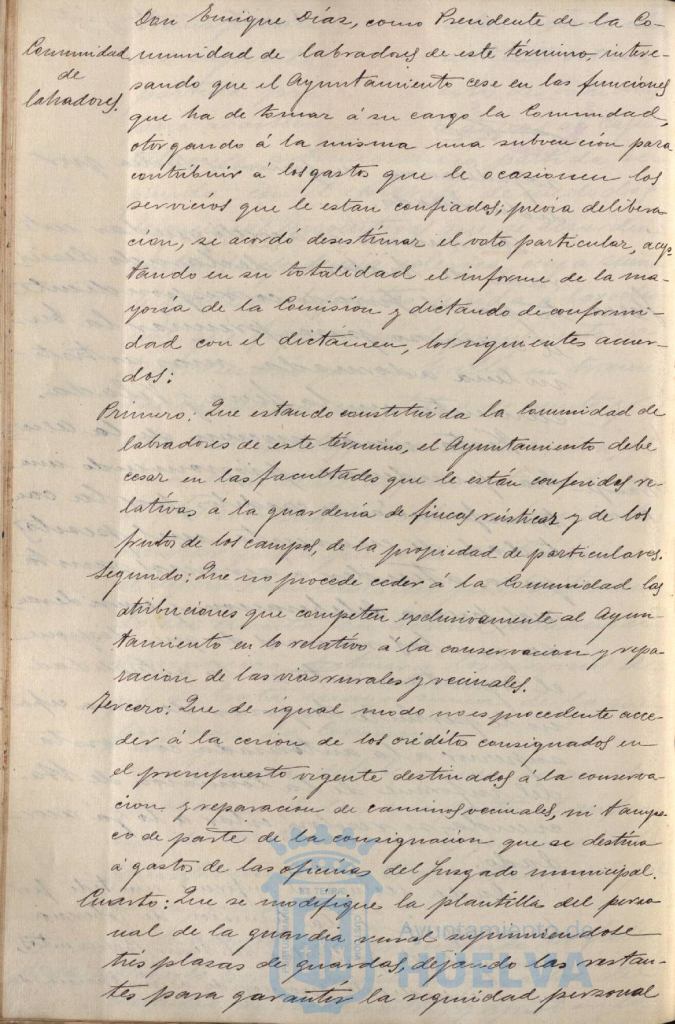 Don Enrique Díaz, como Presidente de la Co-
Comunidad
de
labradores.
munidad de labradores de este término, intere-
sando que el Ayuntamiento cese en las funciones
que ha de tomar á su cargo la Comunidad,
otorgando á la misma una subvención para
contribuir á los gastos que le ocasionen los
servicios que le estan confiados; previa delibera-
ción, se acordó desestimar el voto particular, acep-
tando en su totalidad el informe de la ma-
yoría de la Comisión y dictando de conformi-
dad con el dictámen, los siguientes acuer-
dos:
Primero: Que estando constituida la Comunidad de
labradores de este término, el Ayuntamiento debe
cesar en las facultades que le están conferidas re-
lativas á la guardería de fincas rústicas y de los
frutos de los campos, de la propiedad de particulares.
Segundo: Que no procede ceder á la Comunidad las
atribuciones que competen exclusivamente al Ayun-
tamiento en lo relativo á la conservación y repa-
ración de las vias rurales y vecinales.
Tercero: Que de igual modo no es procedente acce-
der á la cesion de los créditos consignados en
el presupuesto vigente destinados á la conserva-
cion y reparación de caminos vecinales, ni tampo-
co de parte de la consignación que se destina
á gastos de las oficinas del Juzgado municipal.
Cuarto: Que se modifique la plantilla del perso-
nal de la guardia rural suprimiendose
trés plazas de guardas, dejando las restan-
tes para garantir la seguridad personal
Ayuntamiento de
HUELVA